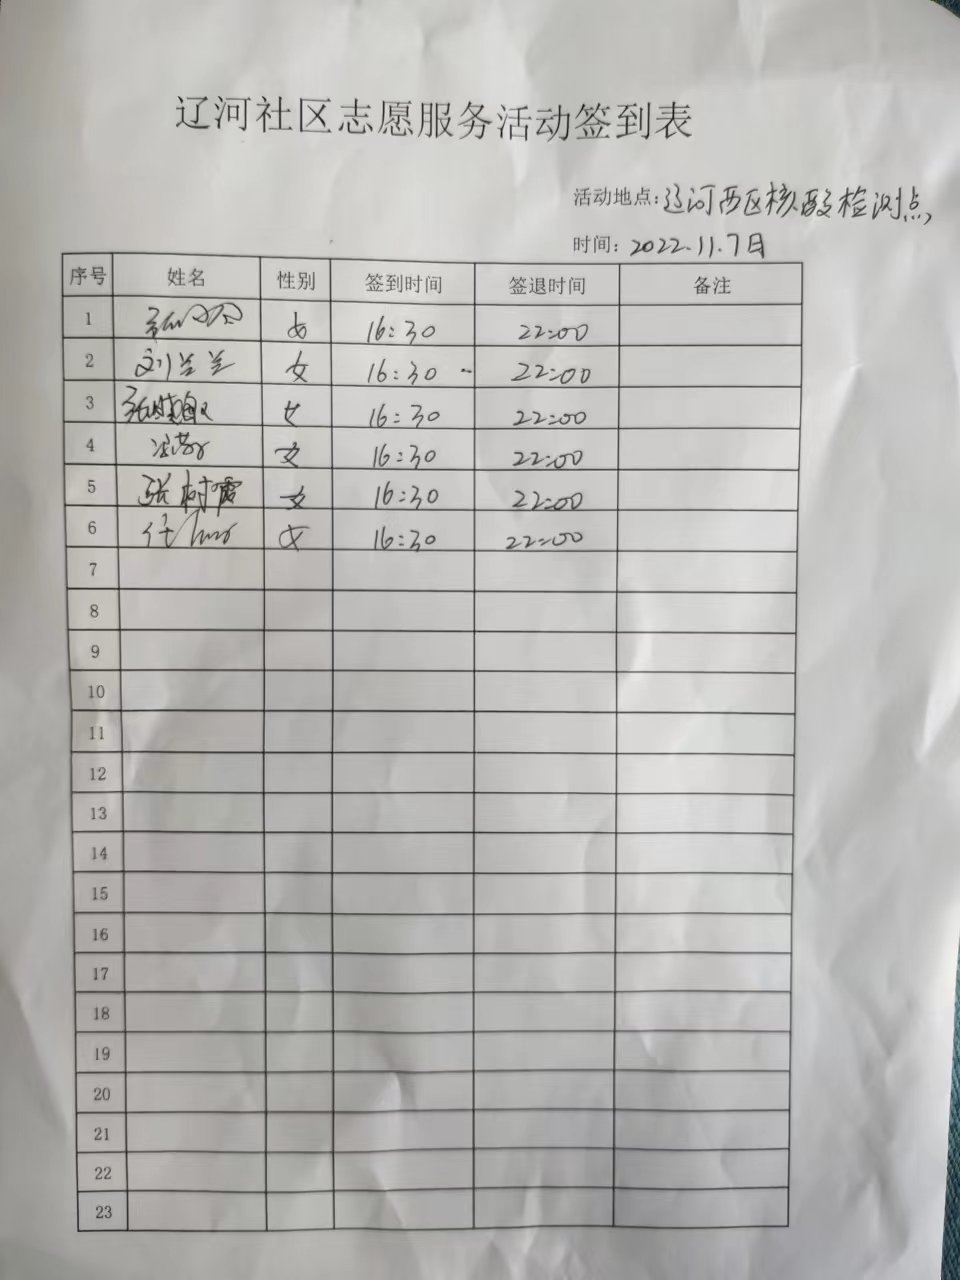 辽河社区志愿服务活动签到表
活动地点：辽河西区核酸检测点
时间：2022.11.7日
序号 姓名 性别 签到时间 签退时间 备注
1 女 16:30 22:00
2 刘兰兰 女 16:30 22:00
3 女 16:30 22:00
4 女 16:30 22:00
5 张树霞 女 16:30 22:00
6 女 16:30 22:00
7
8
9
10
11
12
13
14
15
16
17
18
19
20
21
22
23